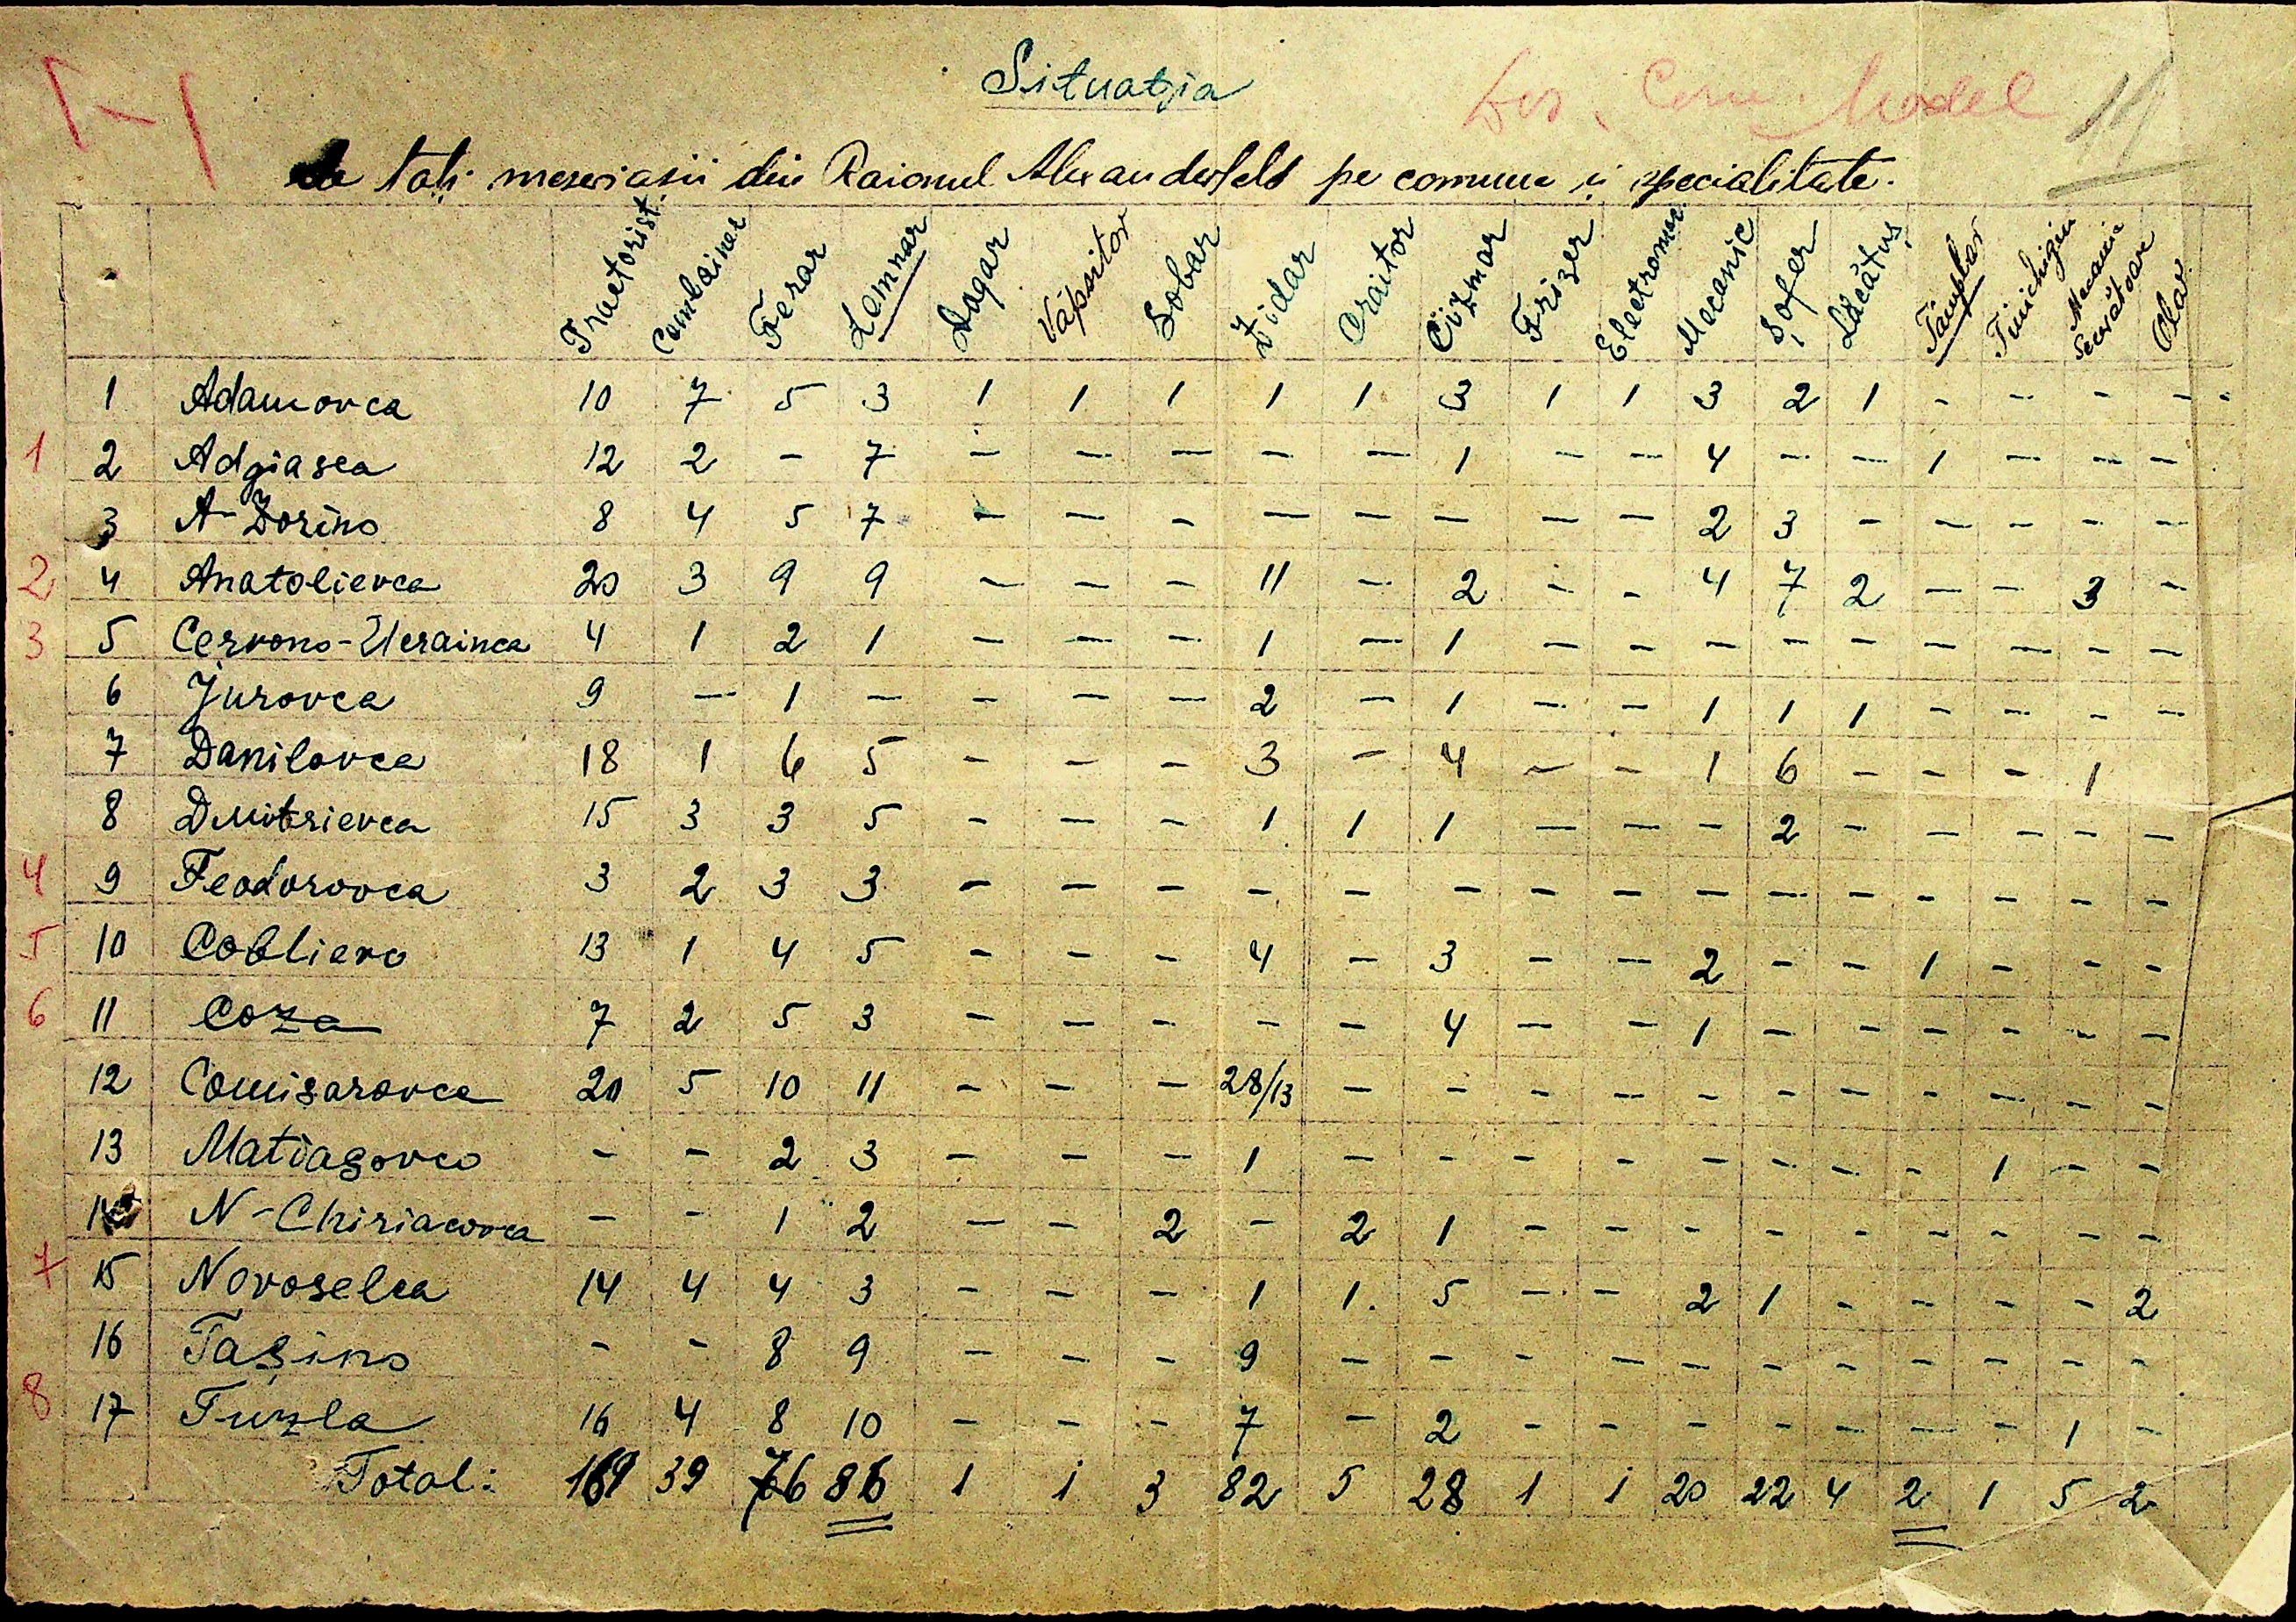 Situația
Dos. Com. Model 11
de toți meseriașii din Raionul Alexanderfeld pe comune și specialitate.
Tractorist Combainer Ferar Lemnar Dogar Văpsitor Sobar Zidar Craitor Cizmar Frizer Electromec. Mecanic Șofer Lăcătuș Tâmplar Tinichigiu Mecanic Secerătoare Olar
1 Adamovca 10 7 5 3 1 1 1 1 1 3 1 1 3 2 1 - - - - -
1 2 Adgiasca 12 2 - 7 - - - - - 1 - - 4 - - 1 - - -
3 A-Zorino 8 4 5 7 - - - - - - - - 2 3 - - - - -
2 4 Anatolievca 20 3 9 9 - - - 11 - 2 - - 4 7 2 - - 3 -
3 5 Cervono-Ucrainca 4 1 2 1 - - - 1 - 1 - - - - - - - - -
6 Jurovca 9 - 1 - - - - 2 - 1 - - 1 1 1 - - - -
7 Danilovca 18 1 6 5 - - - 3 - 4 - - 1 6 - - - 1
8 Dmitrievca 15 3 3 5 - - - 1 1 1 - - - 2 - - - - -
4 9 Feodorovca 3 2 3 3 - - - - - - - - - - - - - - -
5 10 Coblievo 13 1 4 5 - - - 4 - 3 - - 2 - - 1 - - -
6 11 Coza 7 2 5 3 - - - - - 4 - - 1 - - - - - -
12 Comisarovca 20 5 10 11 - - - 28/13 - - - - - - - - - - -
13 Matiasovco - - 2 3 - - - 1 - - - - - - - - 1 - -
14 N-Chiriacovca - - 1 2 - - 2 - 2 1 - - - - - - - - -
7 15 Novoselca 14 4 4 3 - - - 1 1. 5 - - 2 1 - - - - 2
16 Tașino - - 8 9 - - - 9 - - - - - - - - - - -
8 17 Tuzla 16 4 8 10 - - - 7 - 2 - - - - - - - 1 -
Total: 169 39 76 86 1 1 3 82 5 28 1 1 20 22 4 2 1 5 2